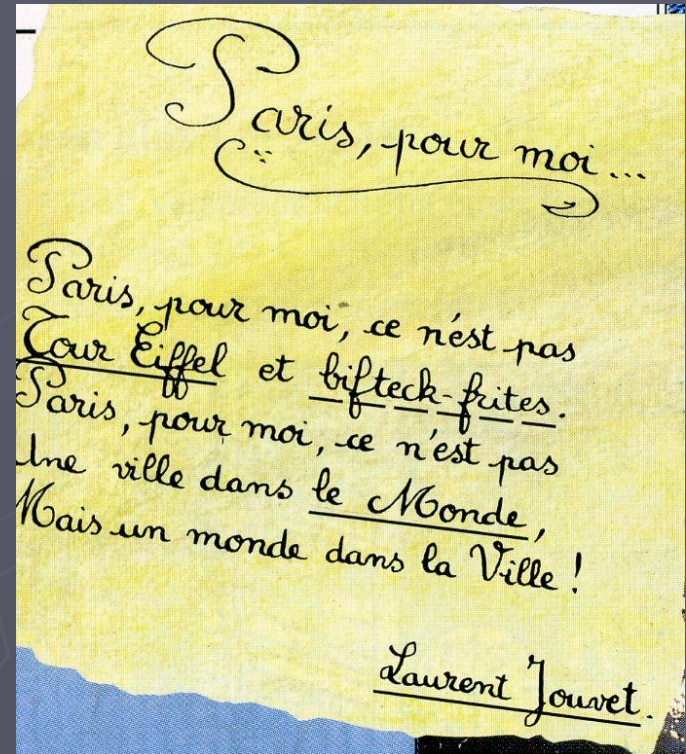 Paris, pour moi...
Paris, pour moi, ce n'est pas
Tour Eiffel et bifteck-frites.
Paris, pour moi, ce n'est pas
Une ville dans le Monde,
Mais un monde dans la Ville !
Laurent Jouvet.